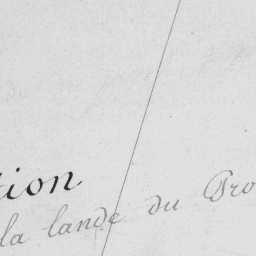 tion
la lande du Pro